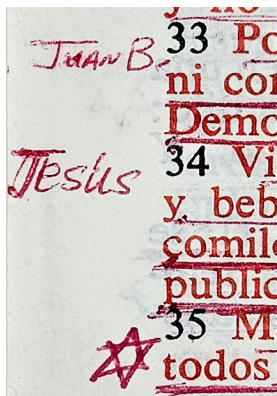 Juan B.
33 Po
ni con
Demo
Jesús
34 Vi
y beb
comilo
public
35 M
todos